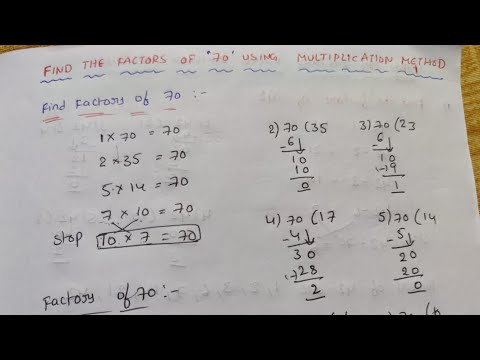 FIND THE FACTORS OF '70' USING MULTIPLICATION METHOD
Find Factors of 70 :-
1 x 70 = 70
2 x 35 = 70
5 x 14 = 70
7 x 10 = 70
Stop 10 x 7 = 70
2) 70 (35
-6
10
10
0
3) 70 (23
6
10
-9
1
4) 70 (17
-4
30
-28
2
5) 70 (14
-5
20
20
0
Factors of 70 :-